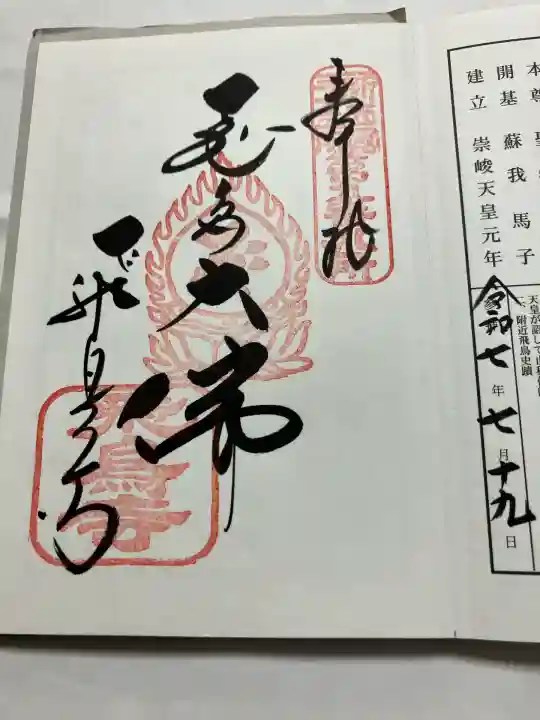 本尊
開基 蘇我馬子
建立 崇峻天皇元年
一、附近飛鳥史蹟
令和七年七月十九日
奉拝
飛鳥大佛
飛鳥寺
飛鳥寺